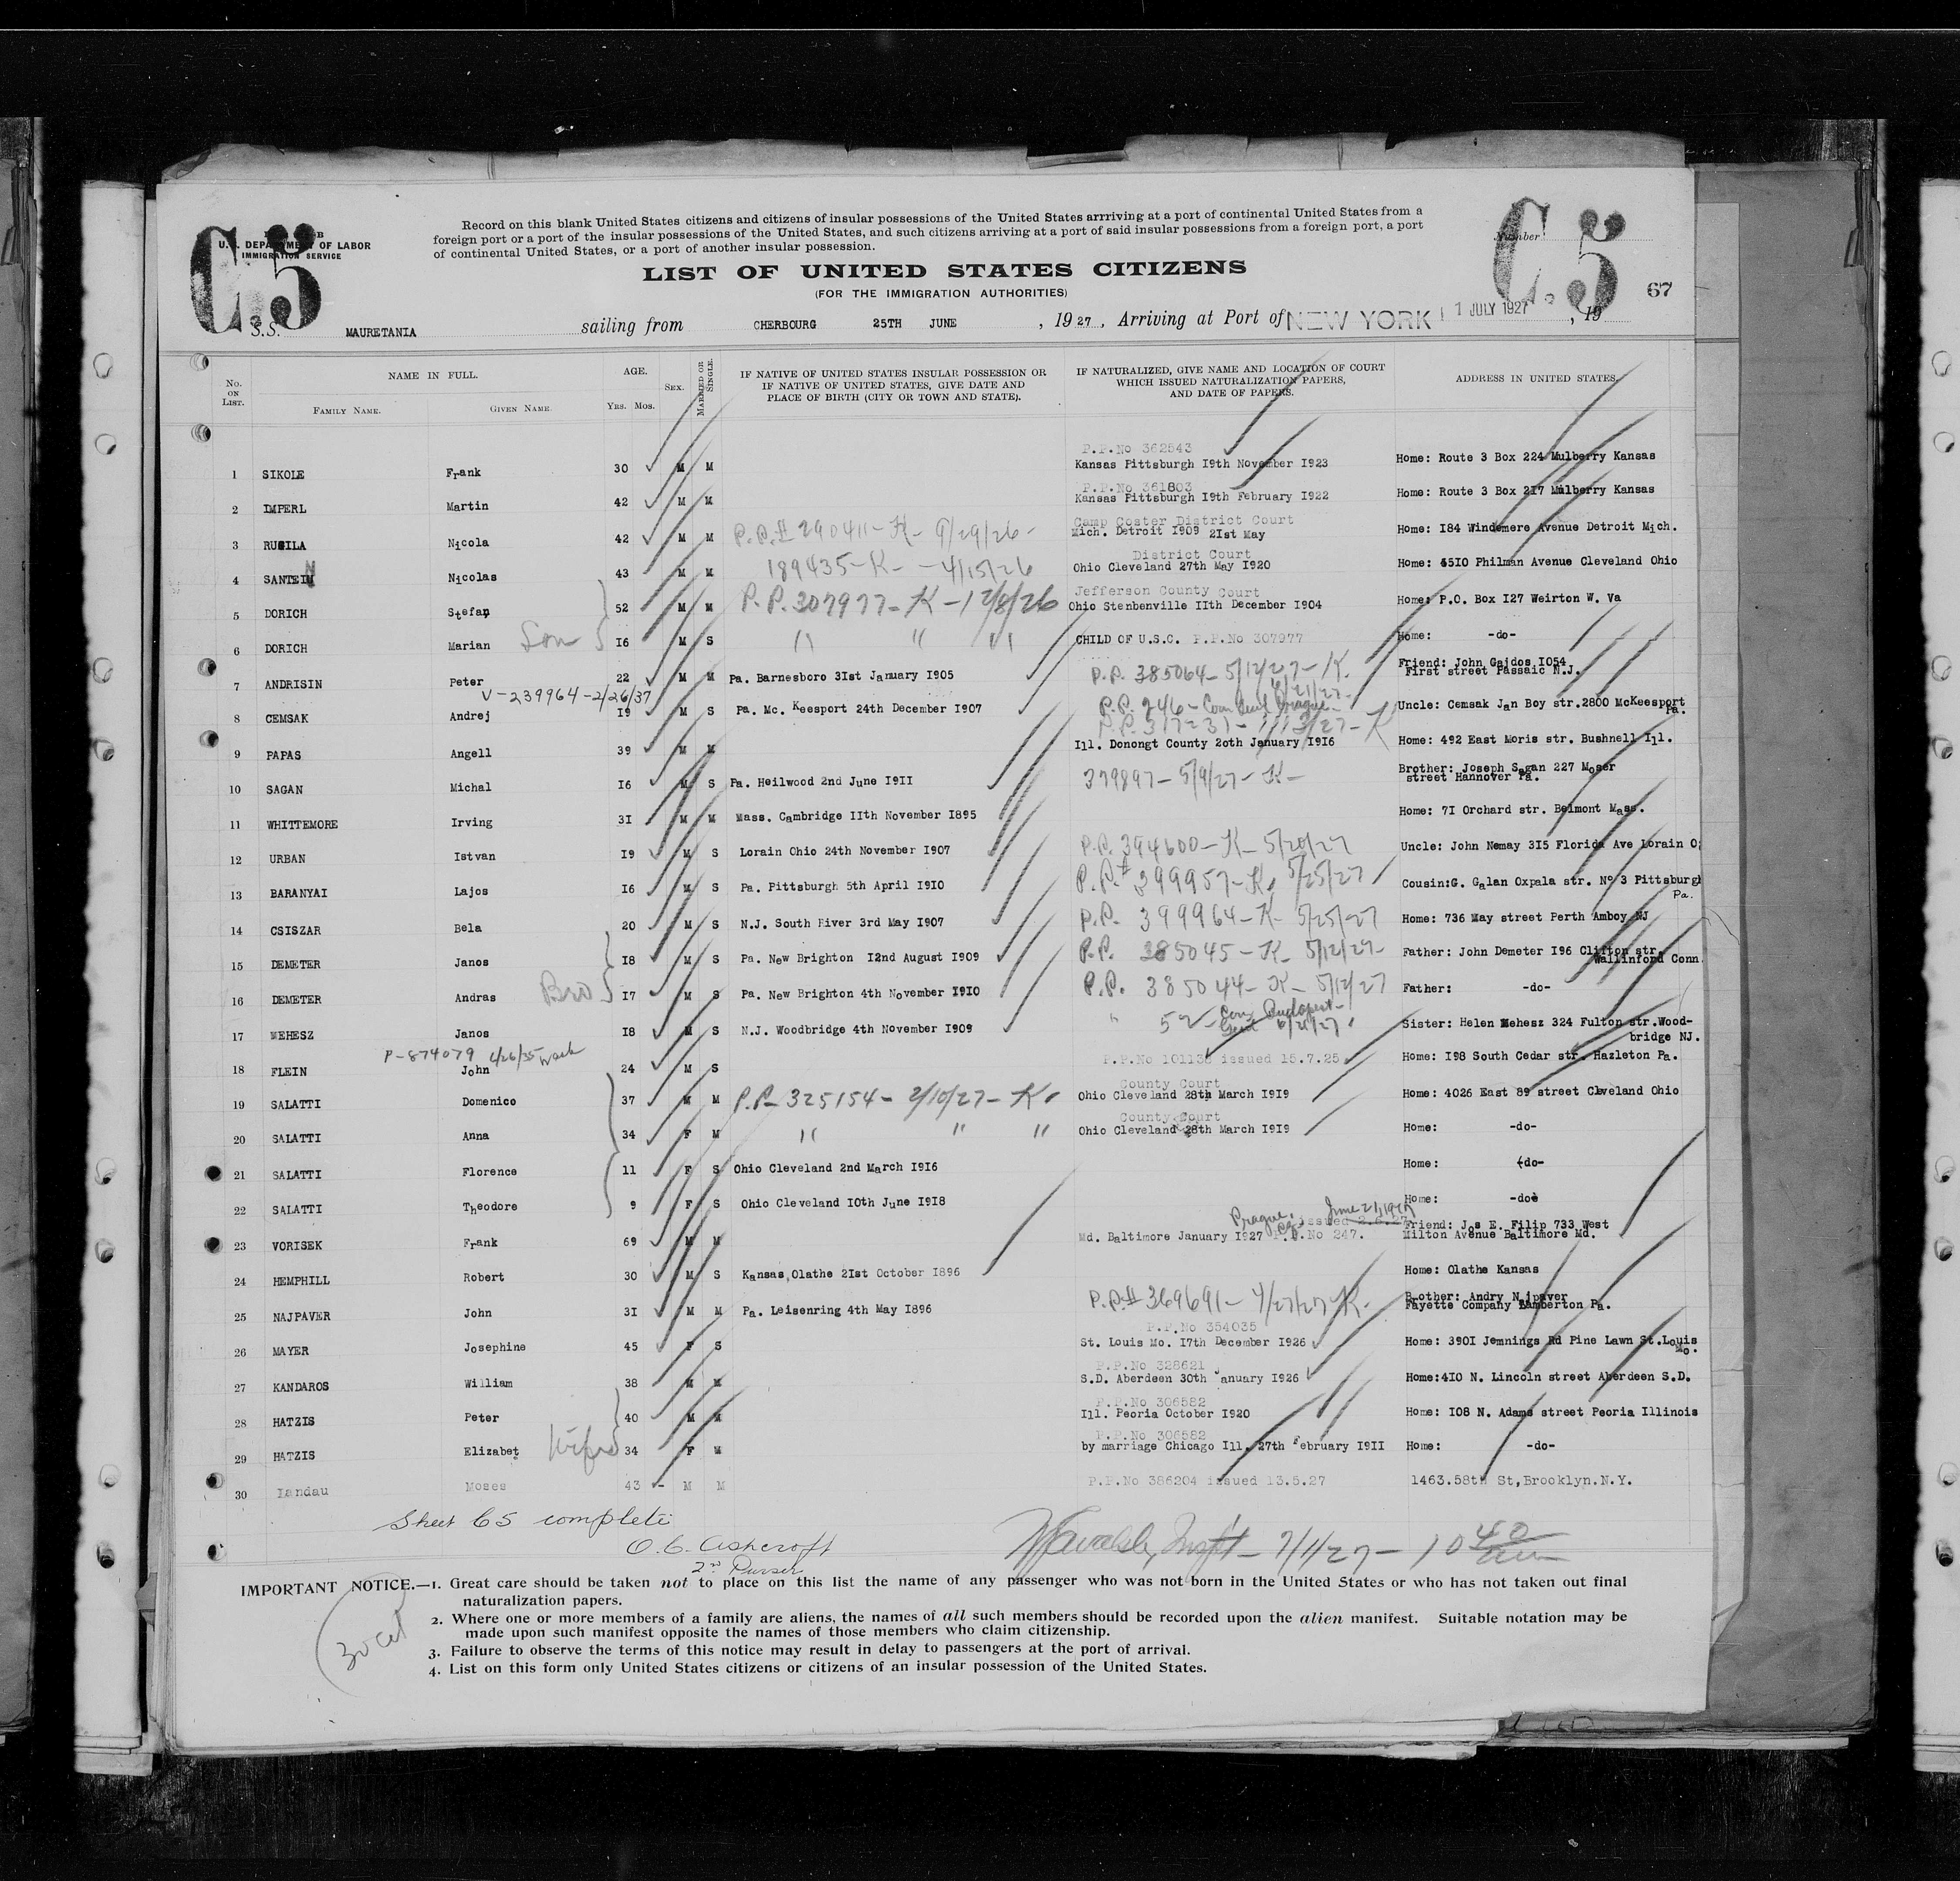 Record on this blank United States citizens and citizens of insular possessions of the United States arrriving at a port of continental United States from a
foreign port or a port of the insular possessions of the United States, and such citizens arriving at a port of said insular possessions from a foreign port, a port
of continental United States, or a port of another insular possession.
C 5
U.S. DEPARTMENT OF LABOR
IMMIGRATION SERVICE
LIST OF UNITED STATES CITIZENS
(FOR THE IMMIGRATION AUTHORITIES)
Number
C. 5
67
S.S. MAURETANIA sailing from CHERBOURG 25TH JUNE , 1927 , Arriving at Port of NEW YORK 1 JULY 1927 , 19
No. ON LIST.
NAME IN FULL.
FAMILY NAME. GIVEN NAME.
AGE.
YRS. MOS.
SEX.
MARRIED OR SINGLE.
IF NATIVE OF UNITED STATES INSULAR POSSESSION OR
IF NATIVE OF UNITED STATES, GIVE DATE AND
PLACE OF BIRTH (CITY OR TOWN AND STATE).
IF NATURALIZED, GIVE NAME AND LOCATION OF COURT
WHICH ISSUED NATURALIZATION PAPERS,
AND DATE OF PAPERS.
ADDRESS IN UNITED STATES.
P.P.No 362543
1 SIKOLE Frank 30 M M Kansas Pittsburgh I9th November I923 Home: Route 3 Box 224 Mulberry Kansas
P.P.No 361803
2 IMPERL Martin 42 M M Kansas Pittsburgh I9th February I922 Home: Route 3 Box 2I7 Mulberry Kansas
Camp Coster District Court
3 RUSILA Nicola 42 M M P.P.# 290411-K- 9/29/26- Mich. Detroit I909 2Ist May Home: I84 Windemere Avenue Detroit Mich.
District Court
4 SANTEIN Nicolas 43 M M 189435-K- -4/15/26 Ohio Cleveland 27th May I920 Home: 45I0 Philman Avenue Cleveland Ohio
Jefferson County Court
5 DORICH Stefan 52 M M P.P. 307977-K-12/8/26 Ohio Stenbenville IIth December I904 Home: P.O. Box I27 Weirton W. Va
6 DORICH Marian Son I6 M S " " " CHILD OF U.S.C. P.P.No 307977 Home: -do-
7 ANDRISIN Peter 22 M M Pa. Barnesboro 3Ist January I905 P.P. 385064-5/12/27-K. Friend: John Gajdos I054
First street Passaic N.J.
V-239964-2/26/37
8 CEMSAK Andrej I9 M S Pa. Mc. Keesport 24th December I907 P.P. 246-Con Genl Prague- 6/21/27- Uncle: Cemsak Jan Boy str.2800 McKeesport
Pa.
P.P. 317231-1/13/27-K
9 PAPAS Angell 39 M M Ill. Donongt County 20th January I9I6 Home: 492 East Moris str. Bushnell Ill.
10 SAGAN Michal I6 M S Pa. Heilwood 2nd June I9II 379897-5/9/27-K- Brother: Joseph Sagan 227 Moser
street Hannover Pa.
11 WHITTEMORE Irving 3I M M Mass. Cambridge IIth November I895 Home: 7I Orchard str. Belmont Mass.
12 URBAN Istvan I9 M S Lorain Ohio 24th November I907 P.P. 394600-K-5/20/27 Uncle: John Nemay 3I5 Florida Ave Lorain O;
13 BARANYAI Lajos I6 M S Pa. Pittsburgh 5th April I9I0 P.P.# 399957-K, 5/25/27 Cousin:G. Galan Oxpala str. No 3 Pittsburgh
Pa.
14 CSISZAR Bela 20 M S N.J. South River 3rd May I907 P.P. 399964-K- 5/25/27 Home: 736 May street Perth Amboy NJ
15 DEMETER Janos I8 M S Pa. New Brighton I2nd August I909 P.P. 385045-K- 5/12/27- Father: John Demeter I96 Clifton str.
Wallinford Conn.
16 DEMETER Andras Bro I7 M S Pa. New Brighton 4th November I9I0 P.P. 385044-K-5/12/27 Father: -do-
17 MEHESZ Janos I8 M S N.J. Woodbridge 4th November I909 " 52-Con Genl Budapest- 6/21/27 Sister: Helen Mehesz 324 Fulton str.Wood-
bridge NJ.
P-874079 4/26/35 Wash
18 FLEIN John 24 M S P.P.No 101138 issued 15.7.25 Home: I98 South Cedar str. Hazleton Pa.
County Court
19 SALATTI Domenico 37 M M P.P- 325154- 2/10/27-K Ohio Cleveland 28th March I9I9 Home: 4026 East 89 street Cleveland Ohio
County Court
20 SALATTI Anna 34 F M " " " Ohio Cleveland 28th March I9I9 Home: -do-
21 SALATTI Florence 11 F S Ohio Cleveland 2nd March I9I6 Home: -do-
22 SALATTI Theodore 9 F S Ohio Cleveland I0th June I9I8 Home: -do-
Prague, June 21, 1927 issued 2.6.27
23 VORISEK Frank 69 M M Md. Baltimore January I927 P.P.No 247. Friend: Jos E. Filip 733 West
Milton Avenue Baltimore Md.
24 HEMPHILL Robert 30 M S Kansas,Olathe 2Ist October I896 Home: Olathe Kansas
25 NAJPAVER John 3I M M Pa. Leisenring 4th May I896 P.P.# 369691- 4/27/27-K- Brother: Andry Najpaver
Fayette Company Lamberton Pa.
P.P.No 354035
26 MAYER Josephine 45 F S St. Louis Mo. I7th December I926 Home: 390I Jemnings Rd Pine Lawn St.Louis
Mo.
P.P.No 328621
27 KANDAROS William 38 M M S.D. Aberdeen 30th January I926 Home:4I0 N. Lincoln street Aberdeen S.D.
P.P.No 306582
28 HATZIS Peter 40 M M Ill. Peoria October I920 Home: I08 N. Adams street Peoria Illinois
P.P.No 306582
29 HATZIS Elizabet Wife 34 F M by marriage Chicago Ill. 27th February I9II Home: -do-
30 Landau Moses 43 - M M P.P.No 386204 issued 13.5.27 1463.58th St,Brooklyn.N.Y.
Sheet 65 complete
O.C. Ashcroft
2nd Purser
Inspt- 7/1/27- 10 40 am
IMPORTANT NOTICE.—1. Great care should be taken not to place on this list the name of any passenger who was not born in the United States or who has not taken out final
naturalization papers.
2. Where one or more members of a family are aliens, the names of all such members should be recorded upon the alien manifest. Suitable notation may be
made upon such manifest opposite the names of those members who claim citizenship.
3. Failure to observe the terms of this notice may result in delay to passengers at the port of arrival.
4. List on this form only United States citizens or citizens of an insular possession of the United States.
30 cit